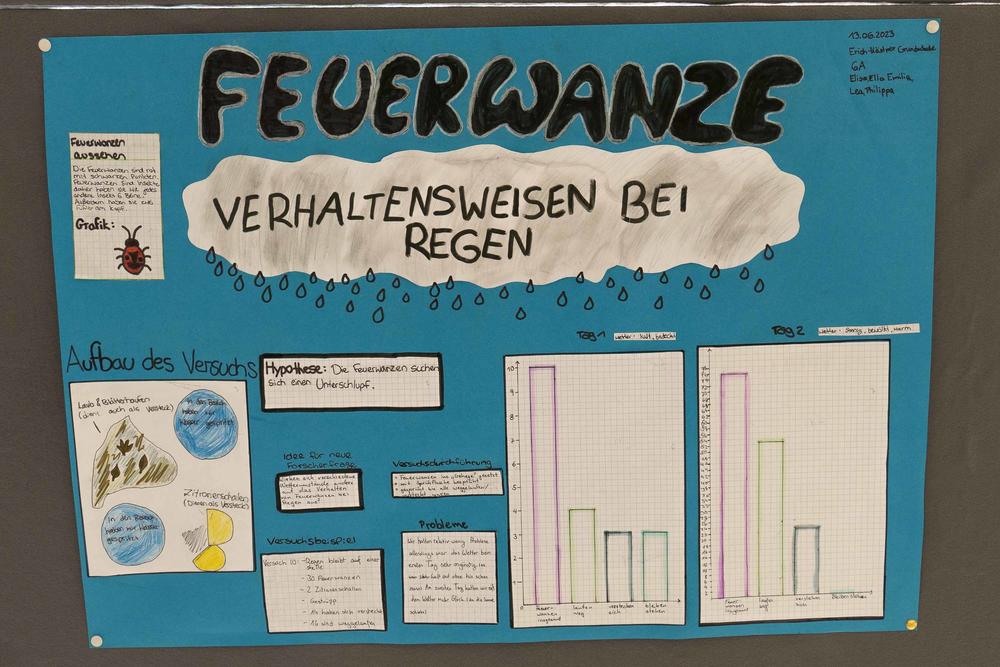 13.06.2023
Erich-Kästner Grundschule
6A
Elisa, Ella Emilia,
Lea, Philippa
FEUERWANZE
VERHALTENSWEISEN BEI
REGEN
Feuerwanzen
aussehen
Die Feuerwanzen sind rot
mit schwarzen Punkten.
Feuerwanzen sind Insekten
daher haben sie wie jedes
andere Insekt 6 Beine.
Außerdem haben sie zwei
Fühler am Kopf.
Grafik:
Aufbau des Versuchs
Laub & Blätterhaufen
(dient auch als Versteck)
In den Bereich
haben wir
Wasser
gesprüht
Zitronenschalen
(Dienen als Versteck)
In den Bereich
haben wir Wasser
gesprüht
Hypothese: Die Feuerwanzen suchen
sich einen Unterschlupf.
Idee für neue
Forscherfrage
wirken sich verschiedene
Wetterumstände anders
auf das Verhalten
von Feuerwanzen bei
Regen aus?
Versuchsdurchführung
Feuerwanzen ins "Gehege" gesetzt
mit Sprühflasche besprüht
gesprüht bis alle weggelaufen/
versteckt waren
Versuchsbeispiel
Versuch 10: -Regen bleibt auf einer
Stelle
- 30 Feuerwanzen
- 2 Zitronenschalen
- Gestrüpp
- 14 haben sich versteckt
- 16 sind weggelaufen
Probleme
Wir hatten relativ wenig Probleme
allerdings war das Wetter beim
ersten Tag sehr ungünstig, da
war kalt und
Am zweiten Tag hatten wir mit
dem Wetter mehr Glück da die Sonne
schien!
Tag 1
Wetter: kalt, bedeckt
10
7
5
4
3
2
1
0
Feuer-
wanzen
insgesamt
laufen
weg
verstecken
sich
bleiben
stehen
Tag 2
Wetter: sonnig, bewölkt, warm
Feuer-
wanzen
insgesamt
laufen
weg
verstecken
sich
bleiben stehen